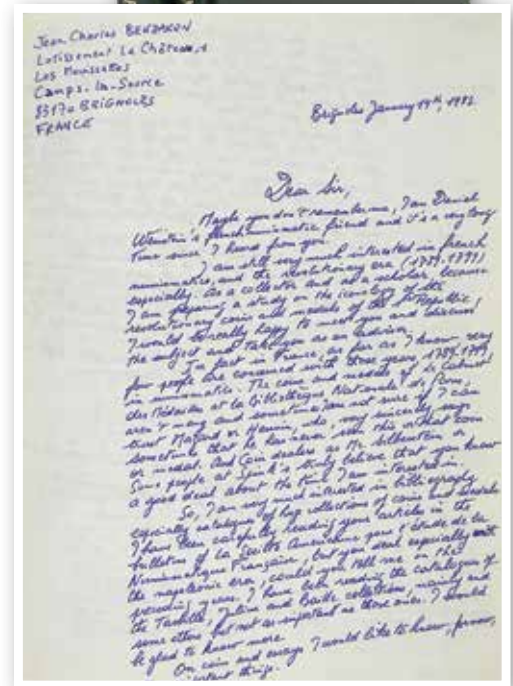 Jean Charles BENZAKEN
Lotissement Le Château, 1
Les Moniscettes
Camps-la-Source
83170 BRIGNOLES
FRANCE
Brignoles January 14th, 1982
Dear Sir,
Maybe you don't remember me, I am Daniel
friend and it's a very long
time since I heard from you.
I am still very much interested in french
numismatics, and the revolutionary era (1789-1799)
especially. As a collector and as a scholar, because
I am preparing a study on the iconology of the
revolutionary coins and medals of the Ist Republic!
I would be really happy to meet you and discuss
the subject and take you as an advisor.
In fact in France, as far as I know, very
few people are concerned with those years, 1789-1799
in numismatics. The coins and medals of le Cabinet
des Médailles at la Bibliothèque Nationale de Paris,
aren't many and sometimes I am not sure if I can
trust Mazard or Hennin, who, very sincerely says
sometimes that he has never seen this or that coin
or medal. And Coin dealers as Mr. Silberstein or
Some people at Spink's truly believe that you know
a good deal about the time I am interested in.
So, I am very much interested in bibliography
especially catalogues of big collections of coins and medals
I have been carefully reading your articles in the
bulletins of La Société Américaine pour l'étude de la
Numismatique Française, but you deal especially with
the napoleonic era, could you tell me on the
preceding years. I have been reading the catalogue of
the and Baille collections, mainly and
some others but not as important as those ones. I would
be glad to know more
On coin and essays I would like to know,
things.